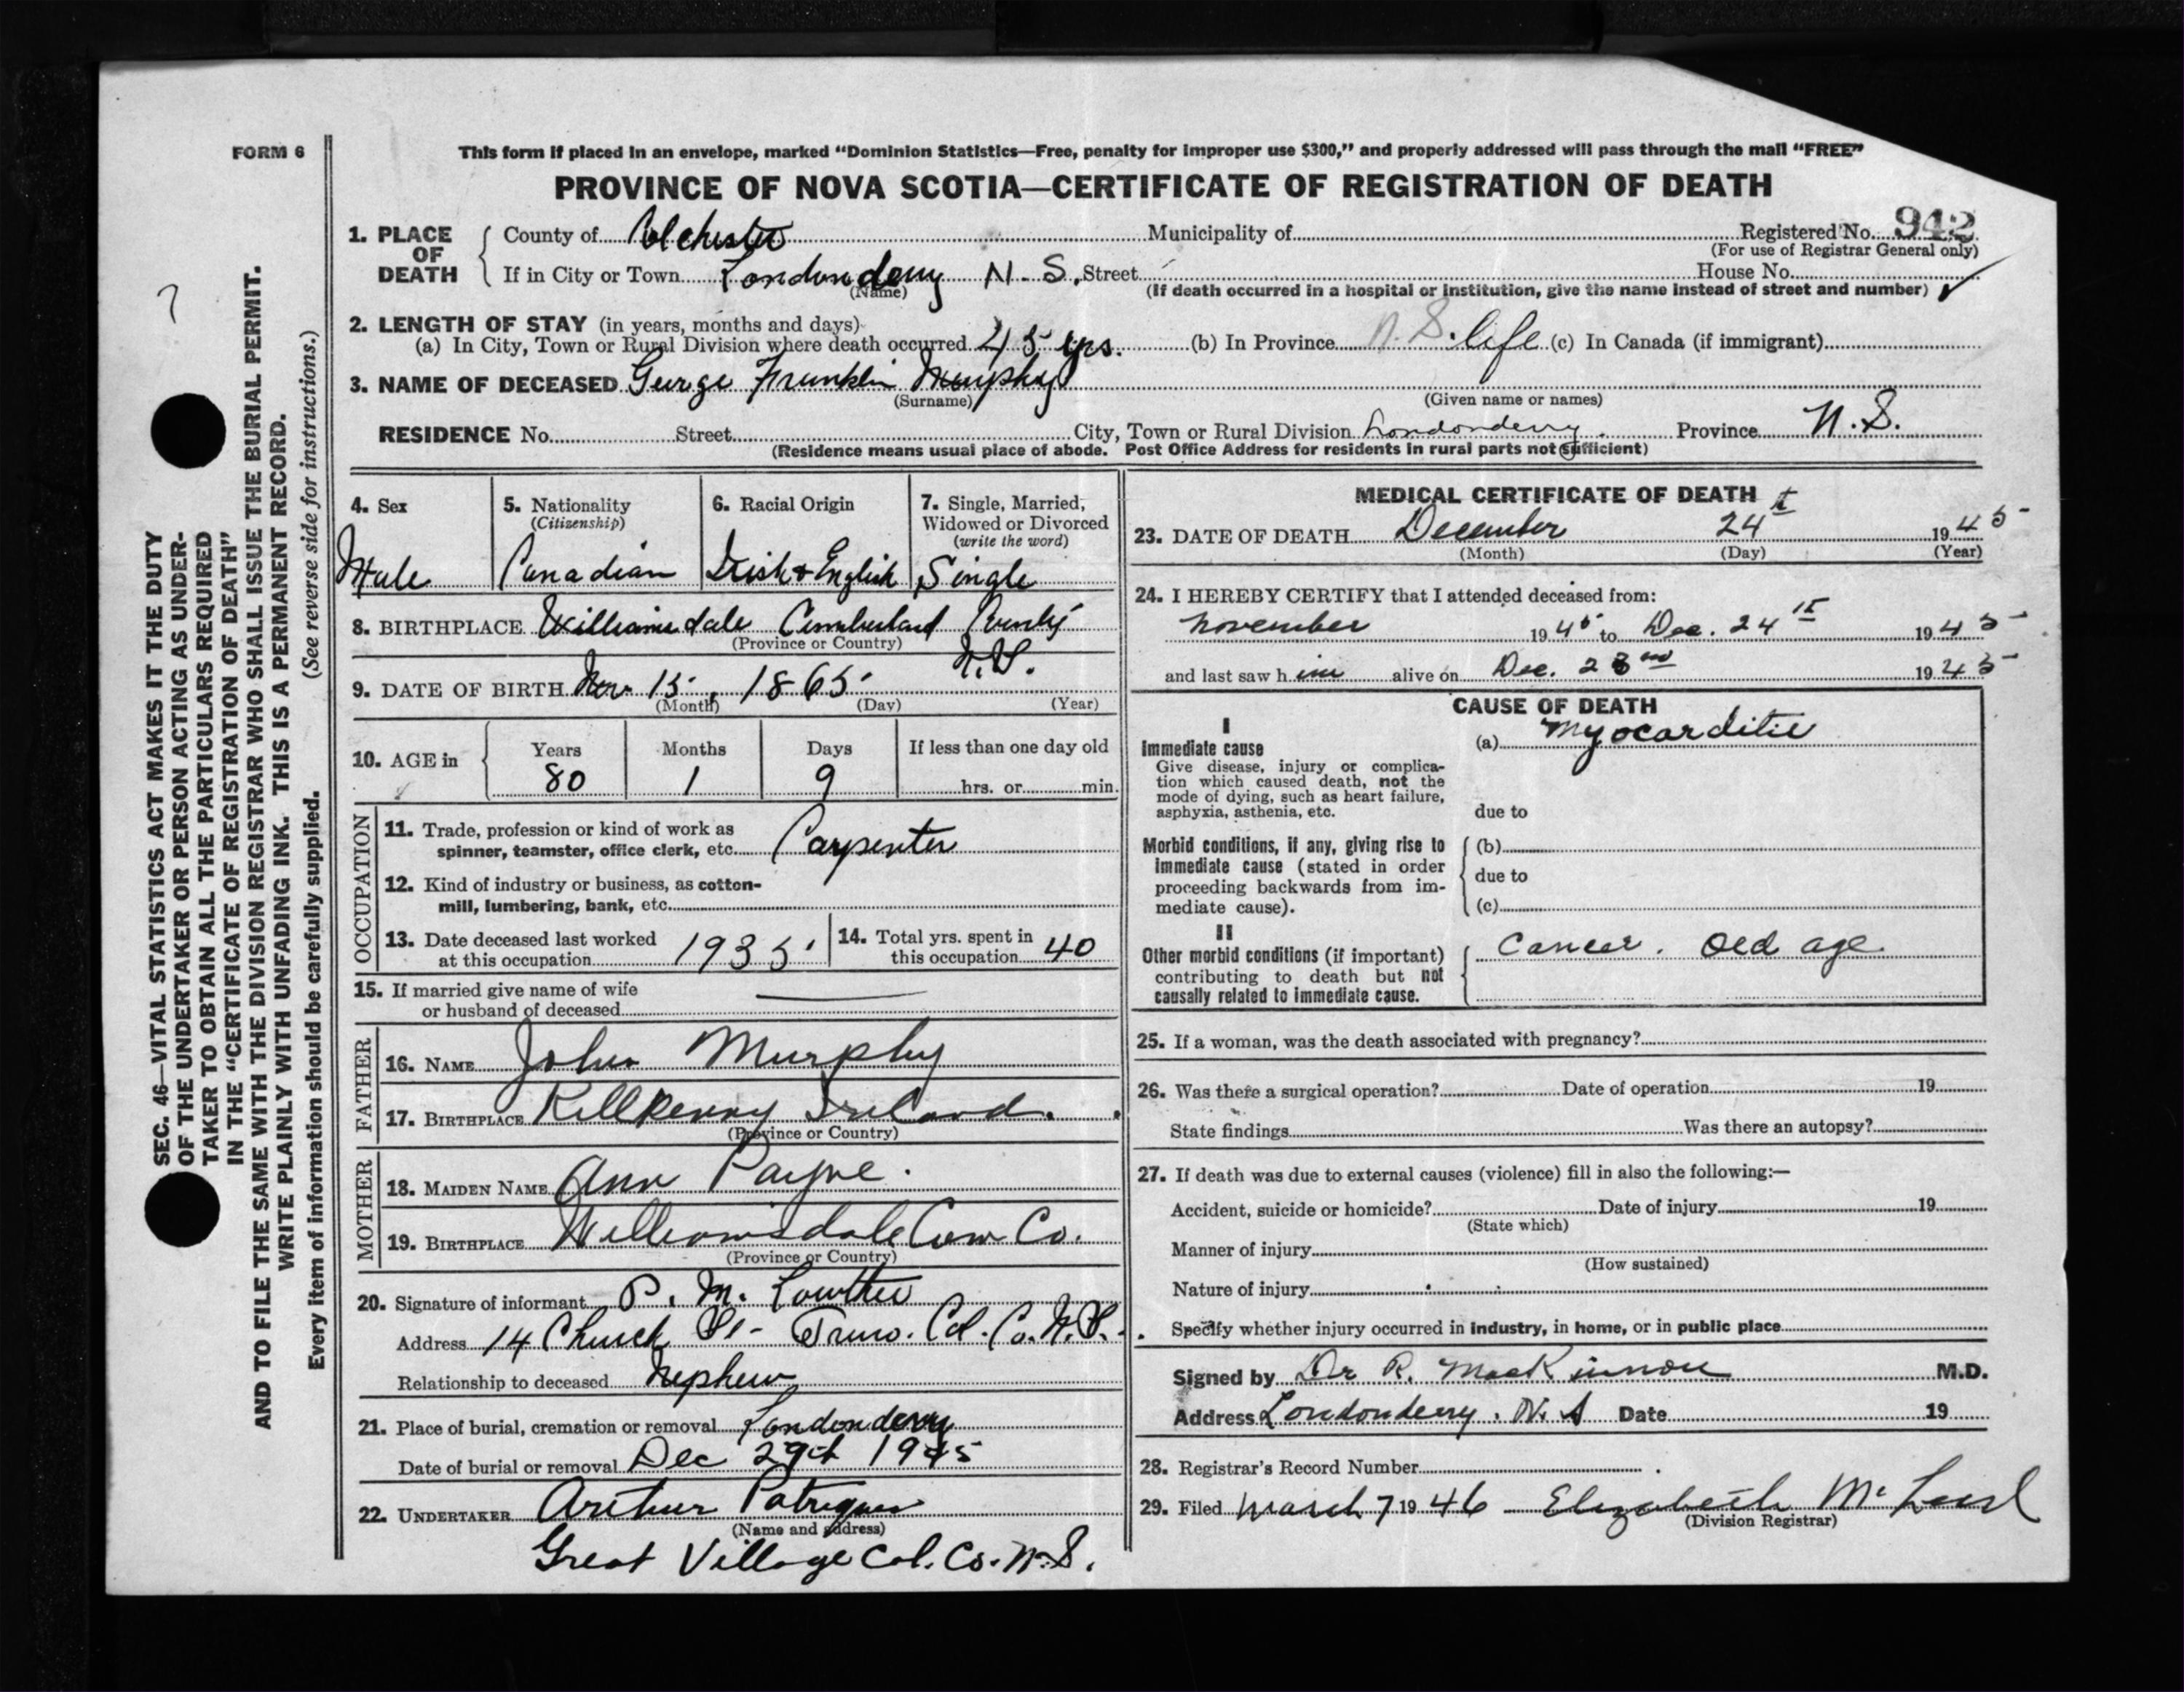 FORM 6
This form if placed in an envelope, marked “Dominion Statistics—Free, penalty for improper use $300,” and properly addressed will pass through the mail “FREE”
PROVINCE OF NOVA SCOTIA—CERTIFICATE OF REGISTRATION OF DEATH
1. PLACE OF DEATH
County of Colchester Municipality of Registered No. 942
(For use of Registrar General only)
If in City or Town Londonderry N. S. Street House No.
(Name) (If death occurred in a hospital or institution, give the name instead of street and number)
2. LENGTH OF STAY (in years, months and days)
(a) In City, Town or Rural Division where death occurred 45 yrs. (b) In Province N. S. life (c) In Canada (if immigrant)
3. NAME OF DECEASED George Franklin Murphy
(Surname) (Given name or names)
RESIDENCE No. Street City, Town or Rural Division Londonderry. Province N. S.
(Residence means usual place of abode. Post Office Address for residents in rural parts not sufficient)
4. Sex
Male
5. Nationality
(Citizenship)
Canadian
6. Racial Origin
Irish & English
7. Single, Married,
Widowed or Divorced
(write the word)
Single
8. BIRTHPLACE Williamsdale Cumberland County
(Province or Country) N.S.
9. DATE OF BIRTH Nov 15, 1865
(Month) (Day) (Year)
10. AGE in
Years Months Days If less than one day old
80 1 9 hrs. or min.
OCCUPATION
11. Trade, profession or kind of work as
spinner, teamster, office clerk, etc. Carpenter
12. Kind of industry or business, as cotton-
mill, lumbering, bank, etc.
13. Date deceased last worked
at this occupation 1935
14. Total yrs. spent in
this occupation 40
15. If married give name of wife
or husband of deceased
FATHER
16. NAME John Murphy
17. BIRTHPLACE Killkenny Ireland.
(Province or Country)
MOTHER
18. MAIDEN NAME Ann Payne.
19. BIRTHPLACE Williamsdale Cum Co.
(Province or Country)
20. Signature of informant P. M. Lowther
Address 14 Church St- Truro. Col. Co. N.S.
Relationship to deceased Nephew
21. Place of burial, cremation or removal Londonderry
Date of burial or removal Dec 29th 1945
22. UNDERTAKER Arthur
(Name and address)
Great Village Col. Co. N.S.
MEDICAL CERTIFICATE OF DEATH
23. DATE OF DEATH December 24th 1945
(Month) (Day) (Year)
24. I HEREBY CERTIFY that I attended deceased from:
November 1945 to Dec. 24th 1945
and last saw him alive on Dec. 23rd 1945
CAUSE OF DEATH
I
Immediate cause
Give disease, injury or complica-
tion which caused death, not the
mode of dying, such as heart failure,
asphyxia, asthenia, etc.
(a) Myocarditis
due to
Morbid conditions, if any, giving rise to
immediate cause (stated in order
proceeding backwards from im-
mediate cause).
(b)
due to
(c)
II
Other morbid conditions (if important)
contributing to death but not
causally related to immediate cause.
Cancer. Old age.
25. If a woman, was the death associated with pregnancy?
26. Was there a surgical operation? Date of operation 19
State findings Was there an autopsy?
27. If death was due to external causes (violence) fill in also the following:—
Accident, suicide or homicide? Date of injury 19
(State which)
Manner of injury
(How sustained)
Nature of injury
Specify whether injury occurred in industry, in home, or in public place
Signed by Dr R. MacKinnon M.D.
Address Londonderry. N. S Date 19
28. Registrar’s Record Number
29. Filed March 7 1946 Elizabeth
(Division Registrar)
SEC. 46—VITAL STATISTICS ACT MAKES IT THE DUTY
OF THE UNDERTAKER OR PERSON ACTING AS UNDER-
TAKER TO OBTAIN ALL THE PARTICULARS REQUIRED
IN THE “CERTIFICATE OF REGISTRATION OF DEATH”
AND TO FILE THE SAME WITH THE DIVISION REGISTRAR WHO SHALL ISSUE THE BURIAL PERMIT.
WRITE PLAINLY WITH UNFADING INK. THIS IS A PERMANENT RECORD.
Every item of information should be carefully supplied. (See reverse side for instructions.)